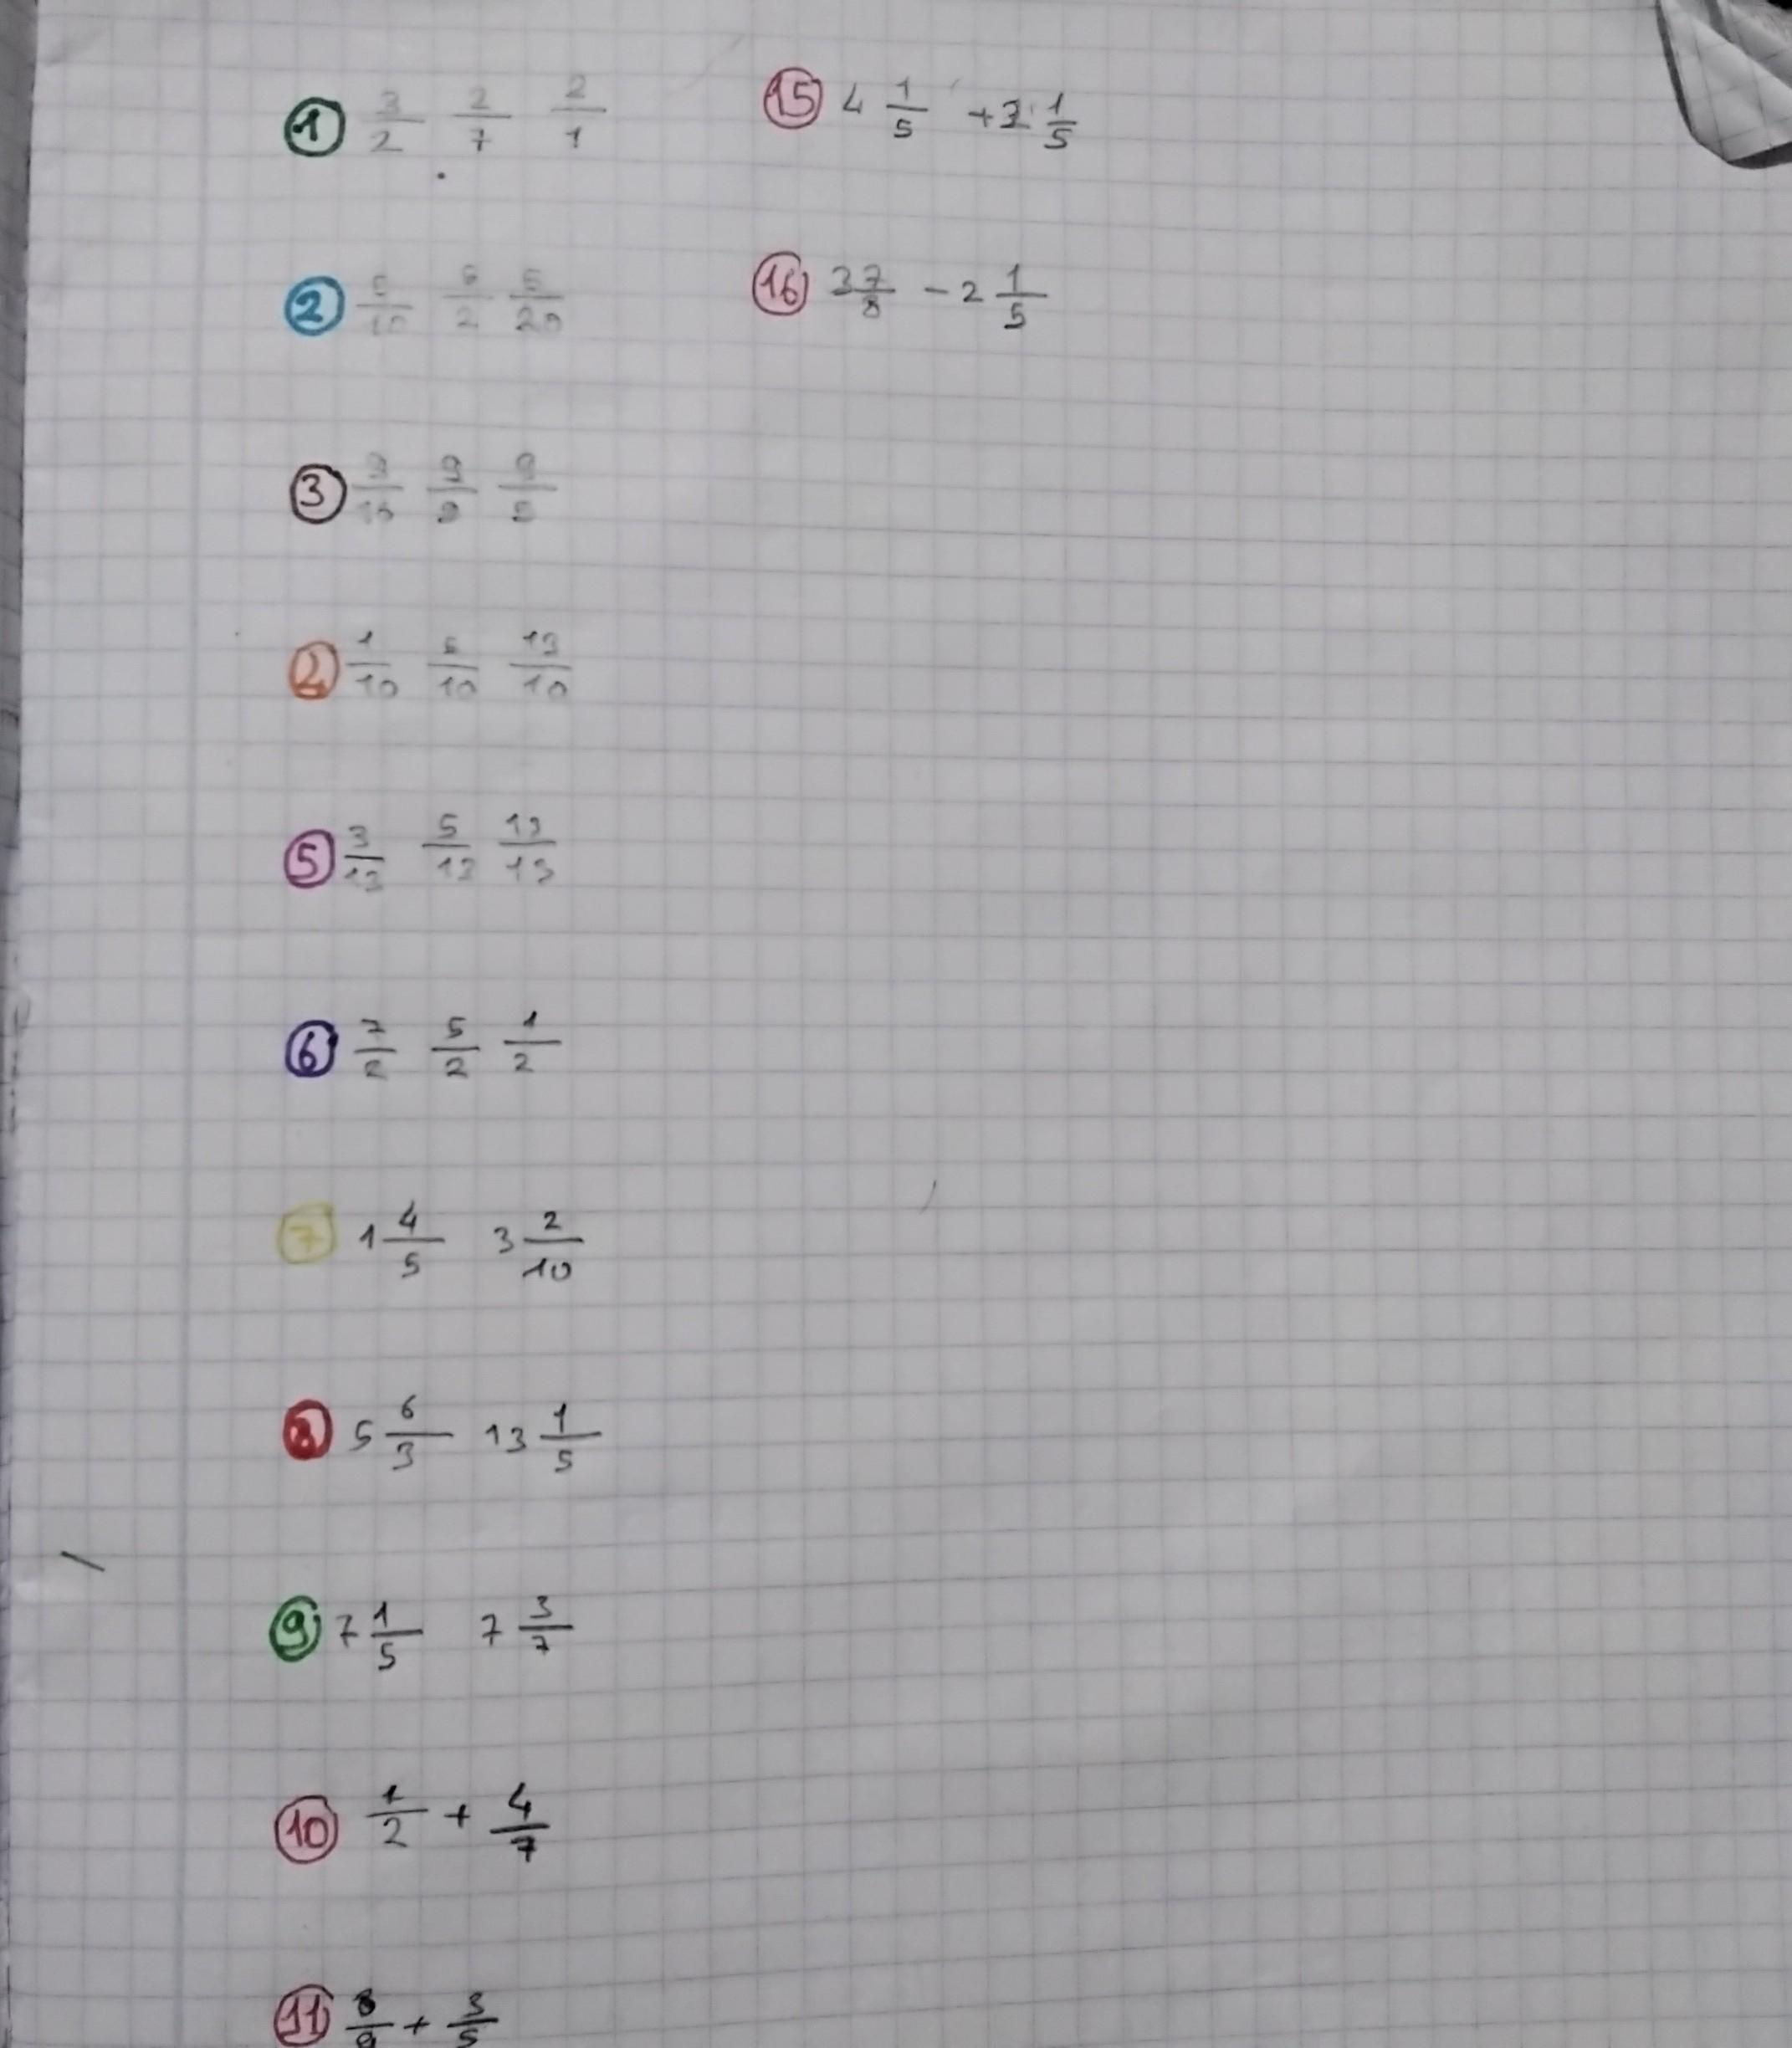 ① 3/2 2/7 2/1
② 5/10 5/2 5/20
③ 9/9
1/10 5/10 13/10
⑤ 3/13 5/13 13/13
⑥ 7/2 5/2 1/2
7 1 4/5 3 2/10
⑧ 5 6/3 13 1/5
⑨ 7 1/5 7 3/7
⑩ 1/2 + 4/7
⑪ 8/9 + 3/5
⑮ 4 1/5 + 1/5
⑯ 3 7/8 - 2 1/5